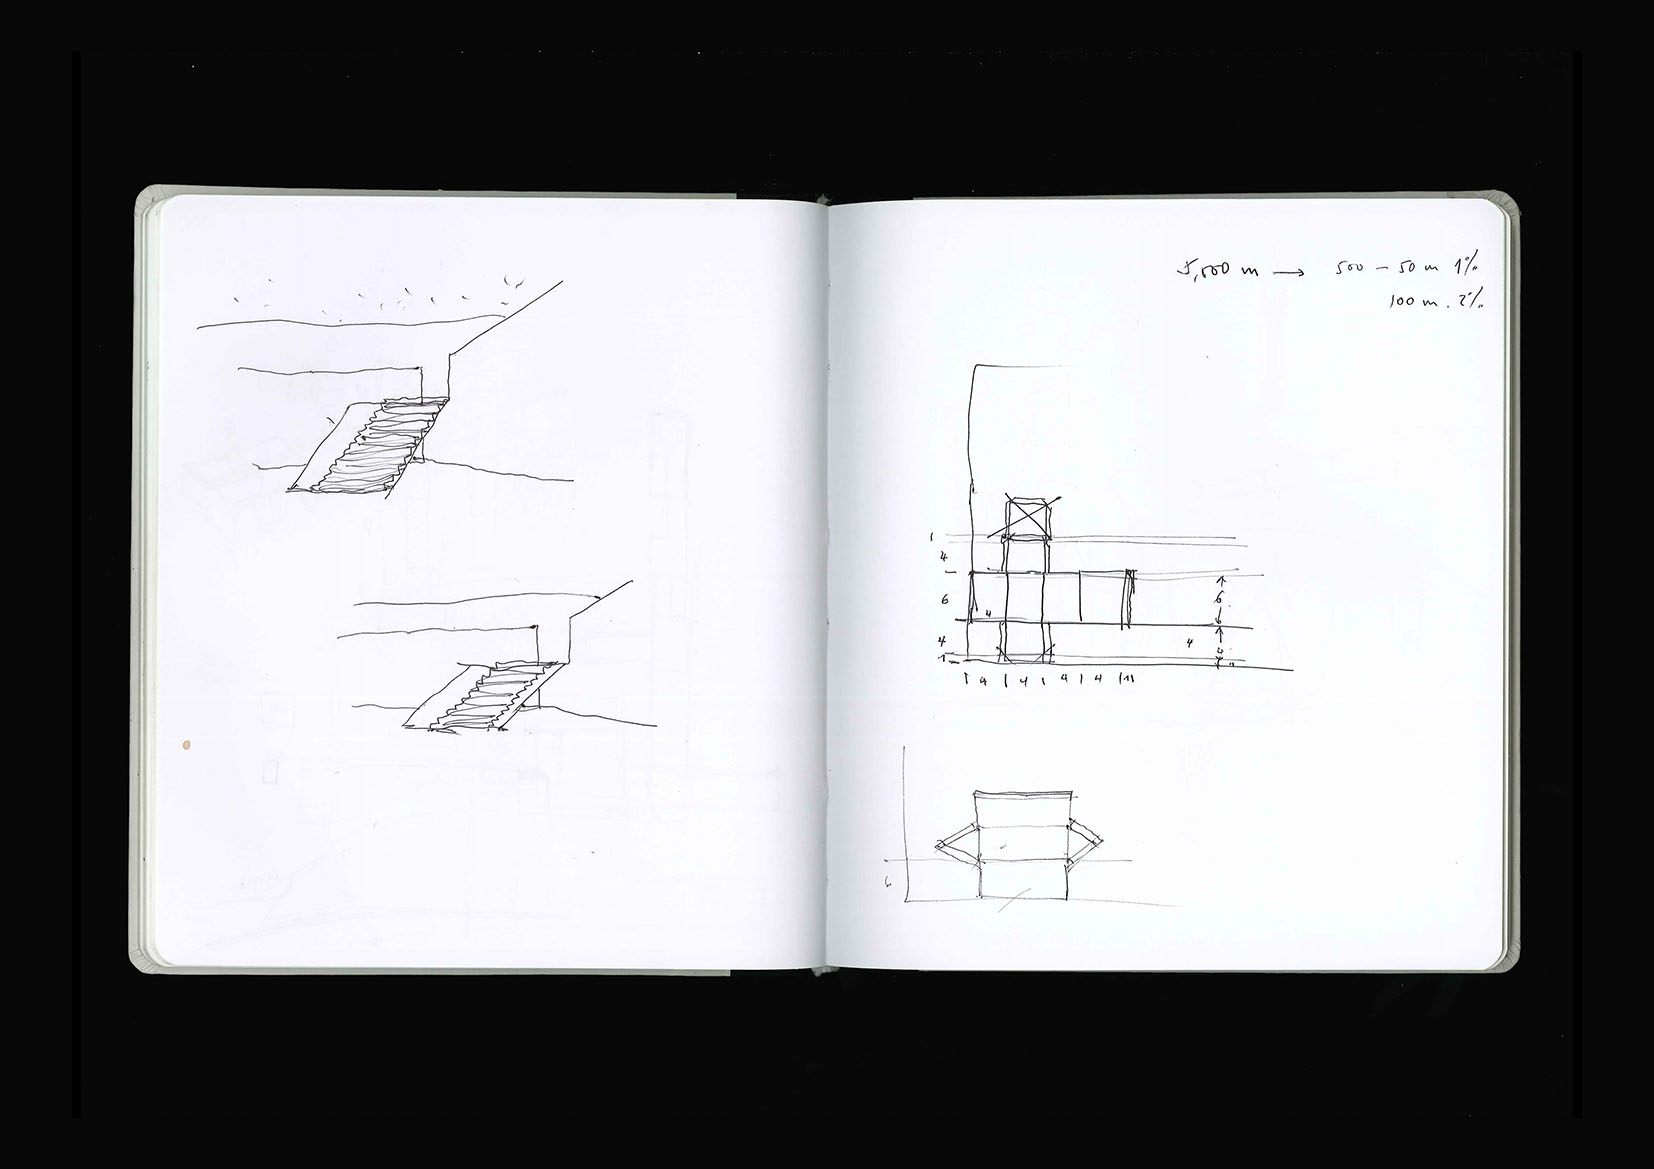 5,000 m → 500 – 50 m 1%
100 m . 2%
1
4
6
4
6
4
4
4
1
4 4 4 4 1
6